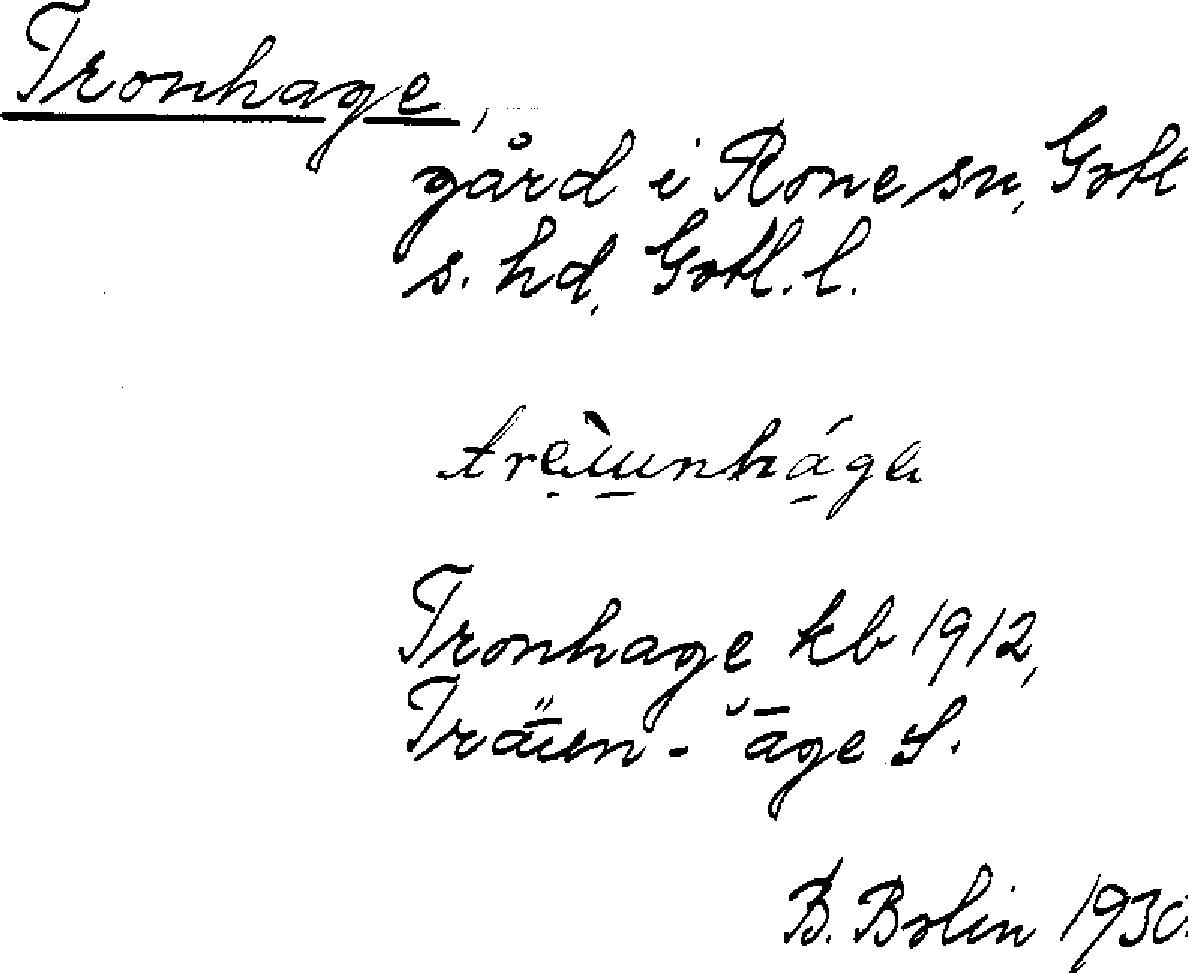 Tronhage,
gård i Rone sn, Gotl
s. hd, Gotl. l.
Tronhage kb 1912,
Träun- age S.
B. Bolin 1930.